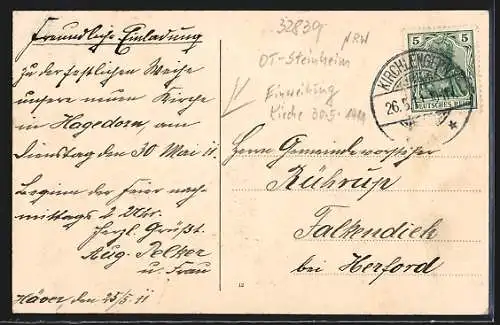 Freundliche Einladung
zu der festlichen Weihe
unsere neuen Kirche
in Hagedorn am
Dienstag den 30 Mai 11.
Beginn der Feier nach-
mittags 2 Uhr.
Herzl. Grüßt.
Aug.
u. Frau
Häver, den 25/5. 11
32839
NRW
OT-Steinheim
Einweihung
Kirche 30.5.1911
5 5
KIRCHLENGERN
26.5.
DEUTSCHES REICH
Herrn Gemeindevorsteher
Rührup
Falkendiek
bei Herford
12